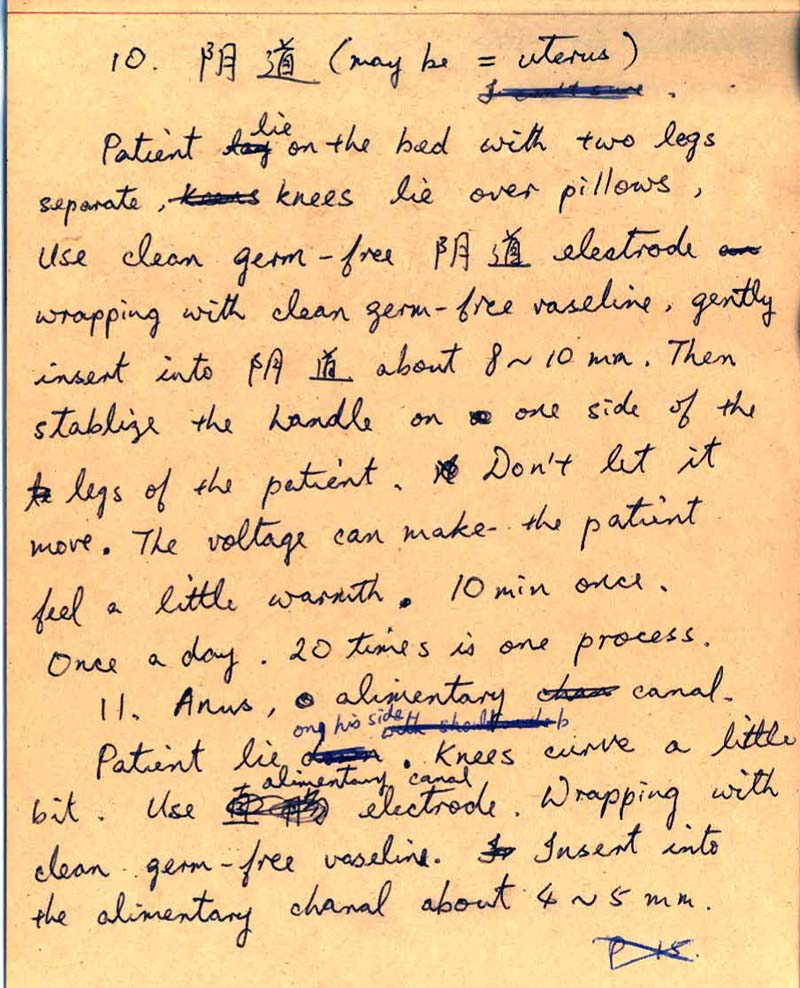 10. 阴道 (may be = uterus)
Patient lie on the bed with two legs
separate, knees lie over pillows,
Use clean germ-free 阴道 electrode
wrapping with clean germ-free vaseline, gently
insert into 阴道 about 8~10 mm. Then
stablize the handle on one side of the
legs of the patient. Don't let it
move. The voltage can make the patient
feel a little warmth. 10 min once.
Once a day. 20 times is one process.
11. Anus, alimentary canal.
on his side
Patient lie . Knees curve a little
alimentary canal
bit. Use electrode. Wrapping with
clean germ-free vaseline. Insert into
the alimentary chanal about 4~5 mm.
P 15.